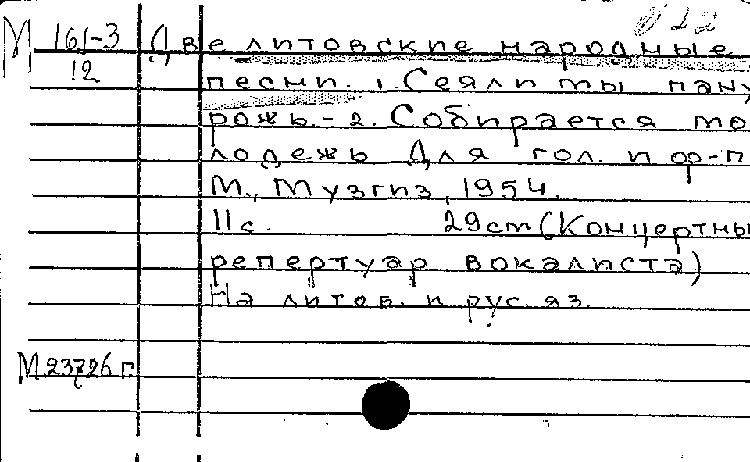 М 161-3
12
Две литовские народные
песни. 1. Сеял ли ты пану
рожь. - 2. Собирается мо
лодежь Для гол. и ф-п
М., Музгиз, 1954.
11 с. 29 cm (Концертны
репертуар вокалиста)
На литов. и рус. яз.
М 23726 г.